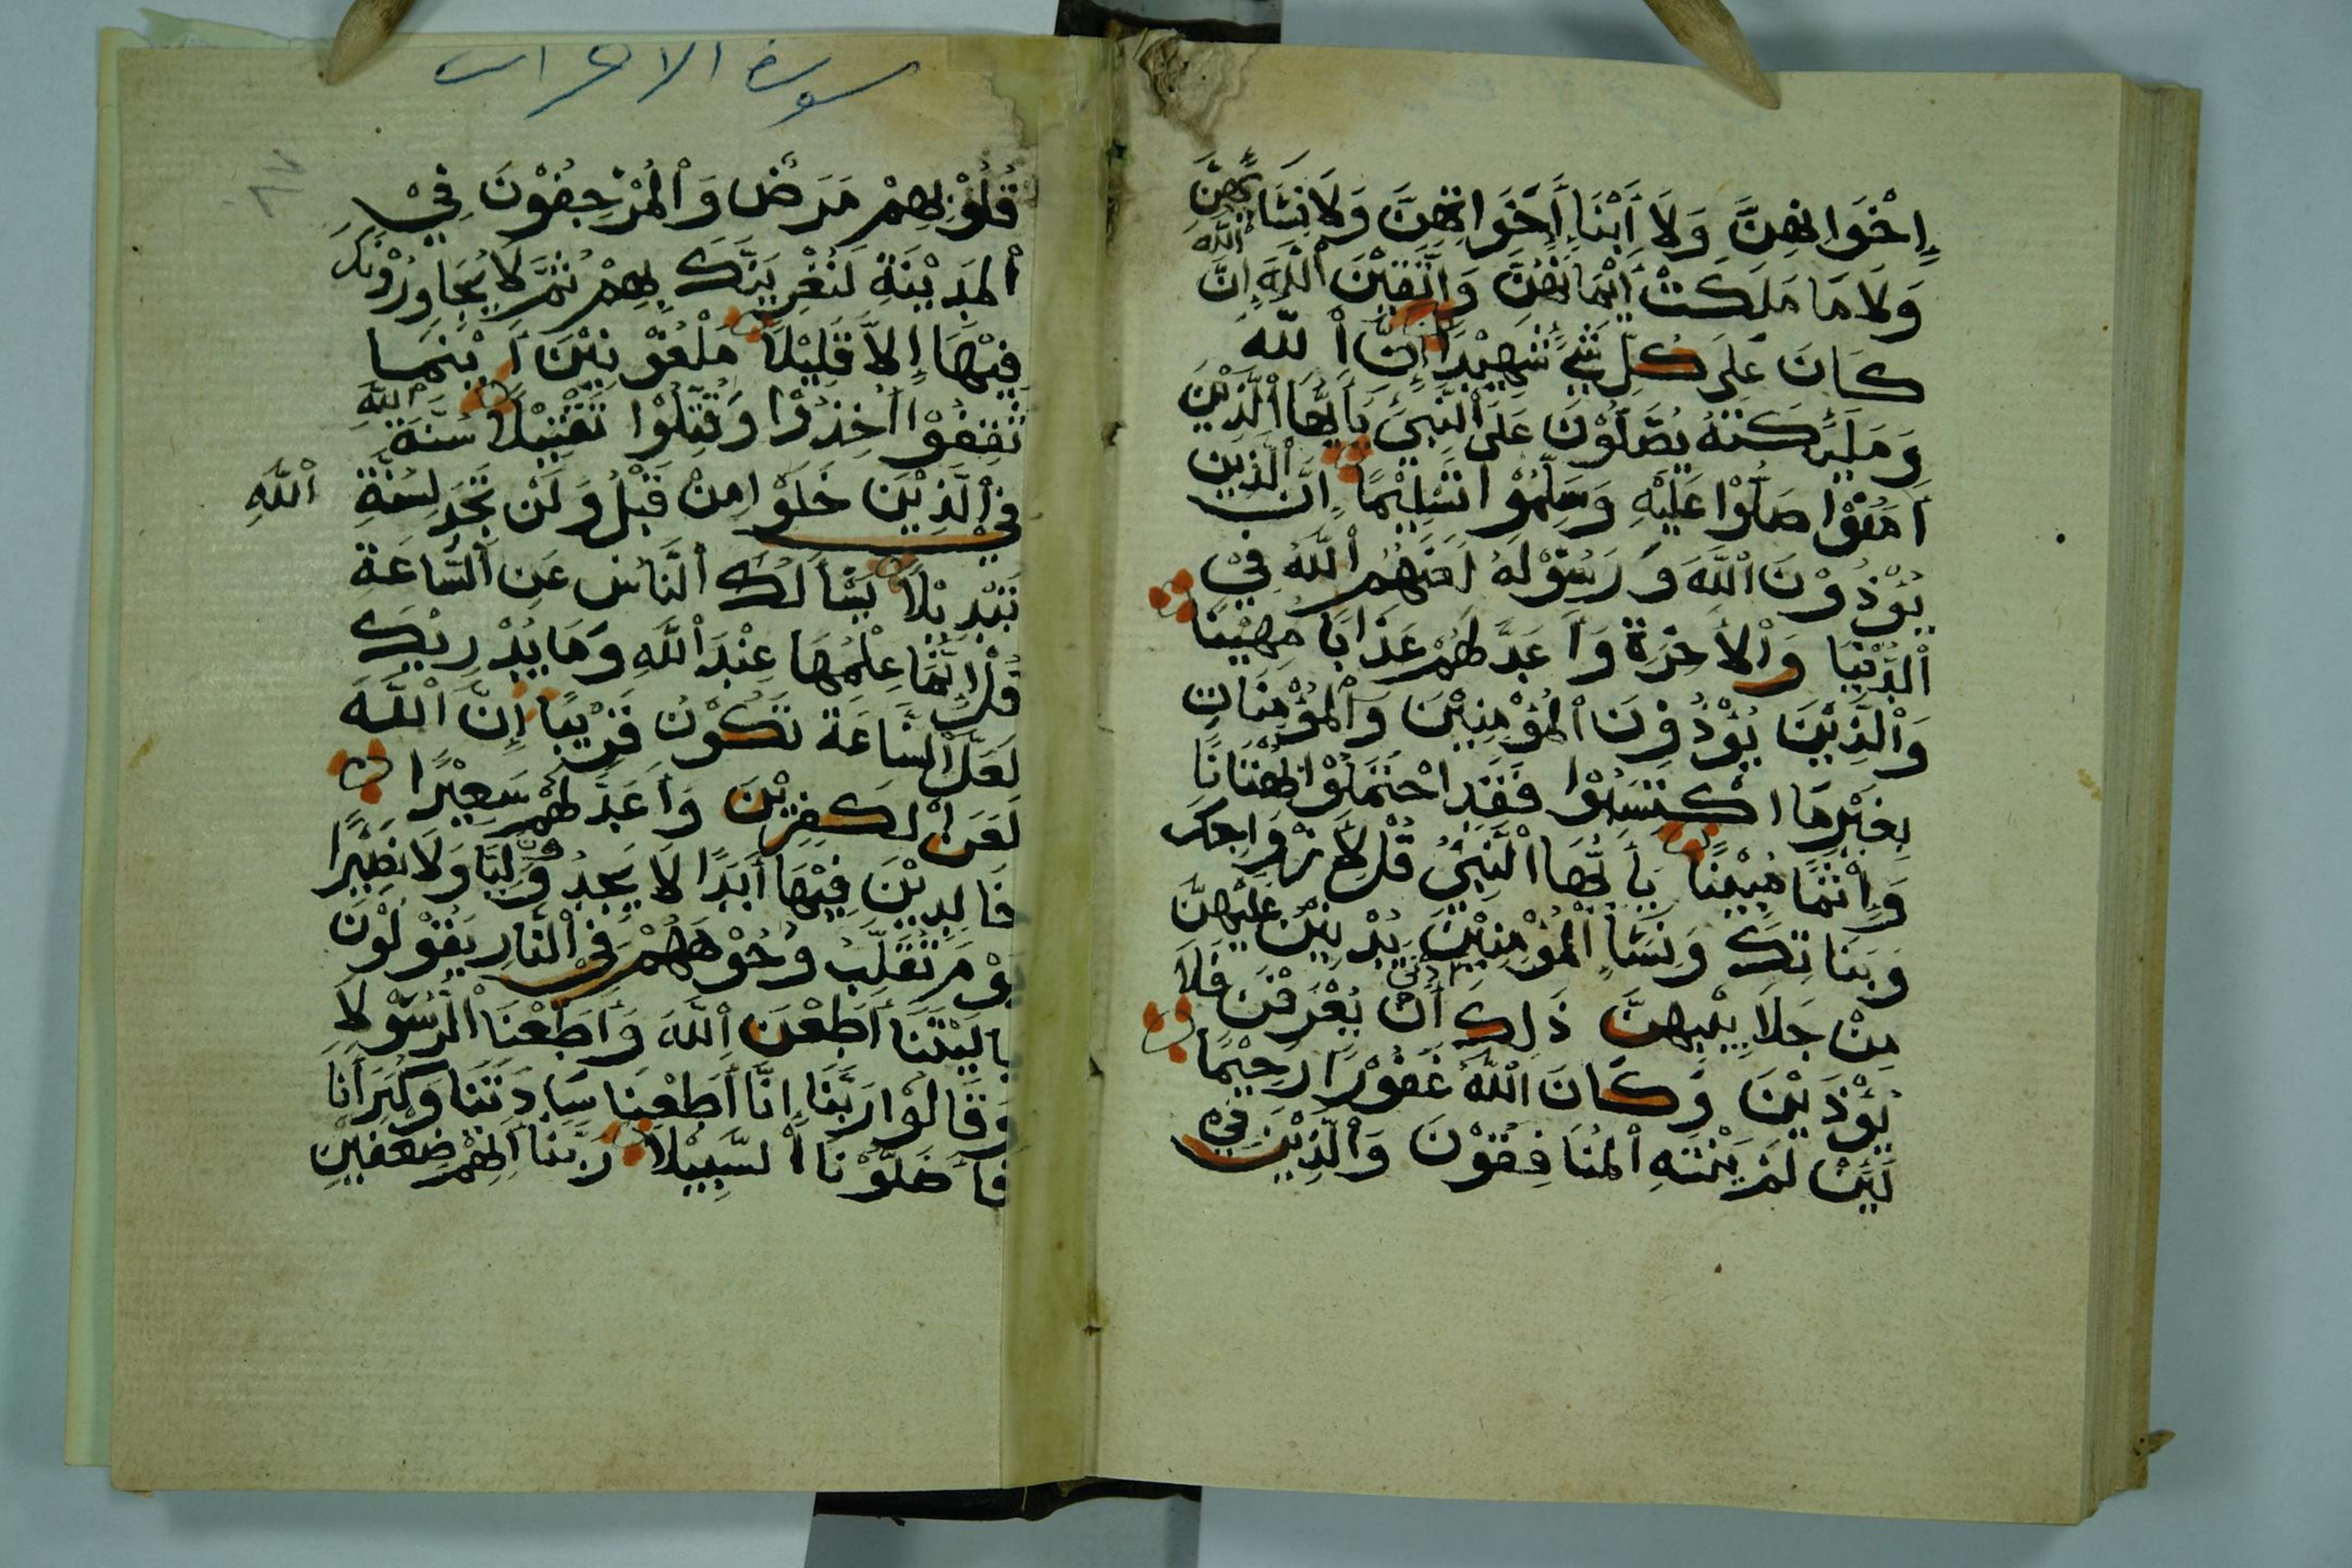 إِخْوَانِهِنَّ وَلَا أَبْنَاءِ أَخَوَاتِهِنَّ وَلَا نِسَائِهِنَّ
وَلَا مَا مَلَكَتْ أَيْمَانُهُنَّ وَاتَّقِيْنَ اللَّهَ إِنَّ اللَّهَ
كَانَ عَلَى كُلِّ شَيْءٍ شَهِيْدًا إِنَّ اللَّهَ
وَمَلَئِكَتَهُ يُصَلُّوْنَ عَلَى النَّبِيِّ يَا أَيُّهَا الَّذِيْنَ
آمَنُوْا صَلُّوْا عَلَيْهِ وَسَلِّمُوْا تَسْلِيْمًا إِنَّ الَّذِيْنَ
يُؤْذُوْنَ اللَّهَ وَرَسُوْلَهُ لَعَنَهُمُ اللَّهُ فِيْ
الدُّنْيَا وَالْأَخِرَةِ وَأَعَدَّ لَهُمْ عَذَابًا مُهِيْنًا
وَالَّذِيْنَ يُؤْذُوْنَ الْمُؤْمِنِيْنَ وَالْمُؤْمِنَاتِ
بِغَيْرِ مَا اكْتَسَبُوْا فَقَدِ احْتَمَلُوْا بُهْتَانًا
وَإِثْمًا مُبِيْنًا يَا أَيُّهَا النَّبِيُّ قُلْ لِأَزْوَاجِكَ
وَبَنَاتِكَ وَنِسَاءِ الْمُؤْمِنِيْنَ يُدْنِيْنَ عَلَيْهِنَّ
مِنْ جَلَابِيْبِهِنَّ ذَلِكَ أَدْنَى أَنْ يُعْرَفْنَ فَلَا
يُؤْذَيْنَ وَكَانَ اللَّهُ غَفُوْرًا رَحِيْمًا
لَئِنْ لَمْ يَنْتَهِ الْمُنَافِقُوْنَ وَالَّذِيْنَ فِيْ
سورة الاعراب
قُلُوْبِهِمْ مَرَضٌ وَالْمُرْجِفُوْنَ فِيْ
الْمَدِيْنَةِ لَنُغْرِيَنَّكَ بِهِمْ ثُمَّ لَا يُجَاوِرُوْنَكَ
فِيْهَا إِلَّا قَلِيْلًا مَلْعُوْنِيْنَ أَيْنَمَا
ثُقِفُوْا أُخِذُوْا وَقُتِّلُوْا تَقْتِيْلًا سُنَّةَ اللَّهِ
فِي الَّذِيْنَ خَلَوْا مِنْ قَبْلُ وَلَنْ تَجِدَ لِسُنَّةِ اللَّهِ
تَبْدِيْلًا يَسْأَلُكَ النَّاسُ عَنِ السَّاعَةِ
قُلْ إِنَّمَا عِلْمُهَا عِنْدَ اللَّهِ وَمَا يُدْرِيْكَ
لَعَلَّ السَّاعَةَ تَكُوْنُ قَرِيْبًا إِنَّ اللَّهَ
لَعَنَ الْكَفِرِيْنَ وَأَعَدَّ لَهُمْ سَعِيْرًا
خَالِدِيْنَ فِيْهَا أَبَدًا لَا يَجِدُوْنَ وَلِيًّا وَلَا نَصِيْرًا
يَوْمَ تُقَلَّبُ وُجُوْهُهُمْ فِي النَّارِ يَقُوْلُوْنَ
يَا لَيْتَنَا أَطَعْنَ اللَّهَ وَأَطَعْنَا الرَّسُوْلَا
وَقَالُوْا رَبَّنَا إِنَّا أَطَعْنَا سَادَتَنَا وَكُبَرَأَنَا
فَأَضَلُّوْنَا السَّبِيْلَا رَبَّنَا آتِهِمْ ضِعْفَيْنِ